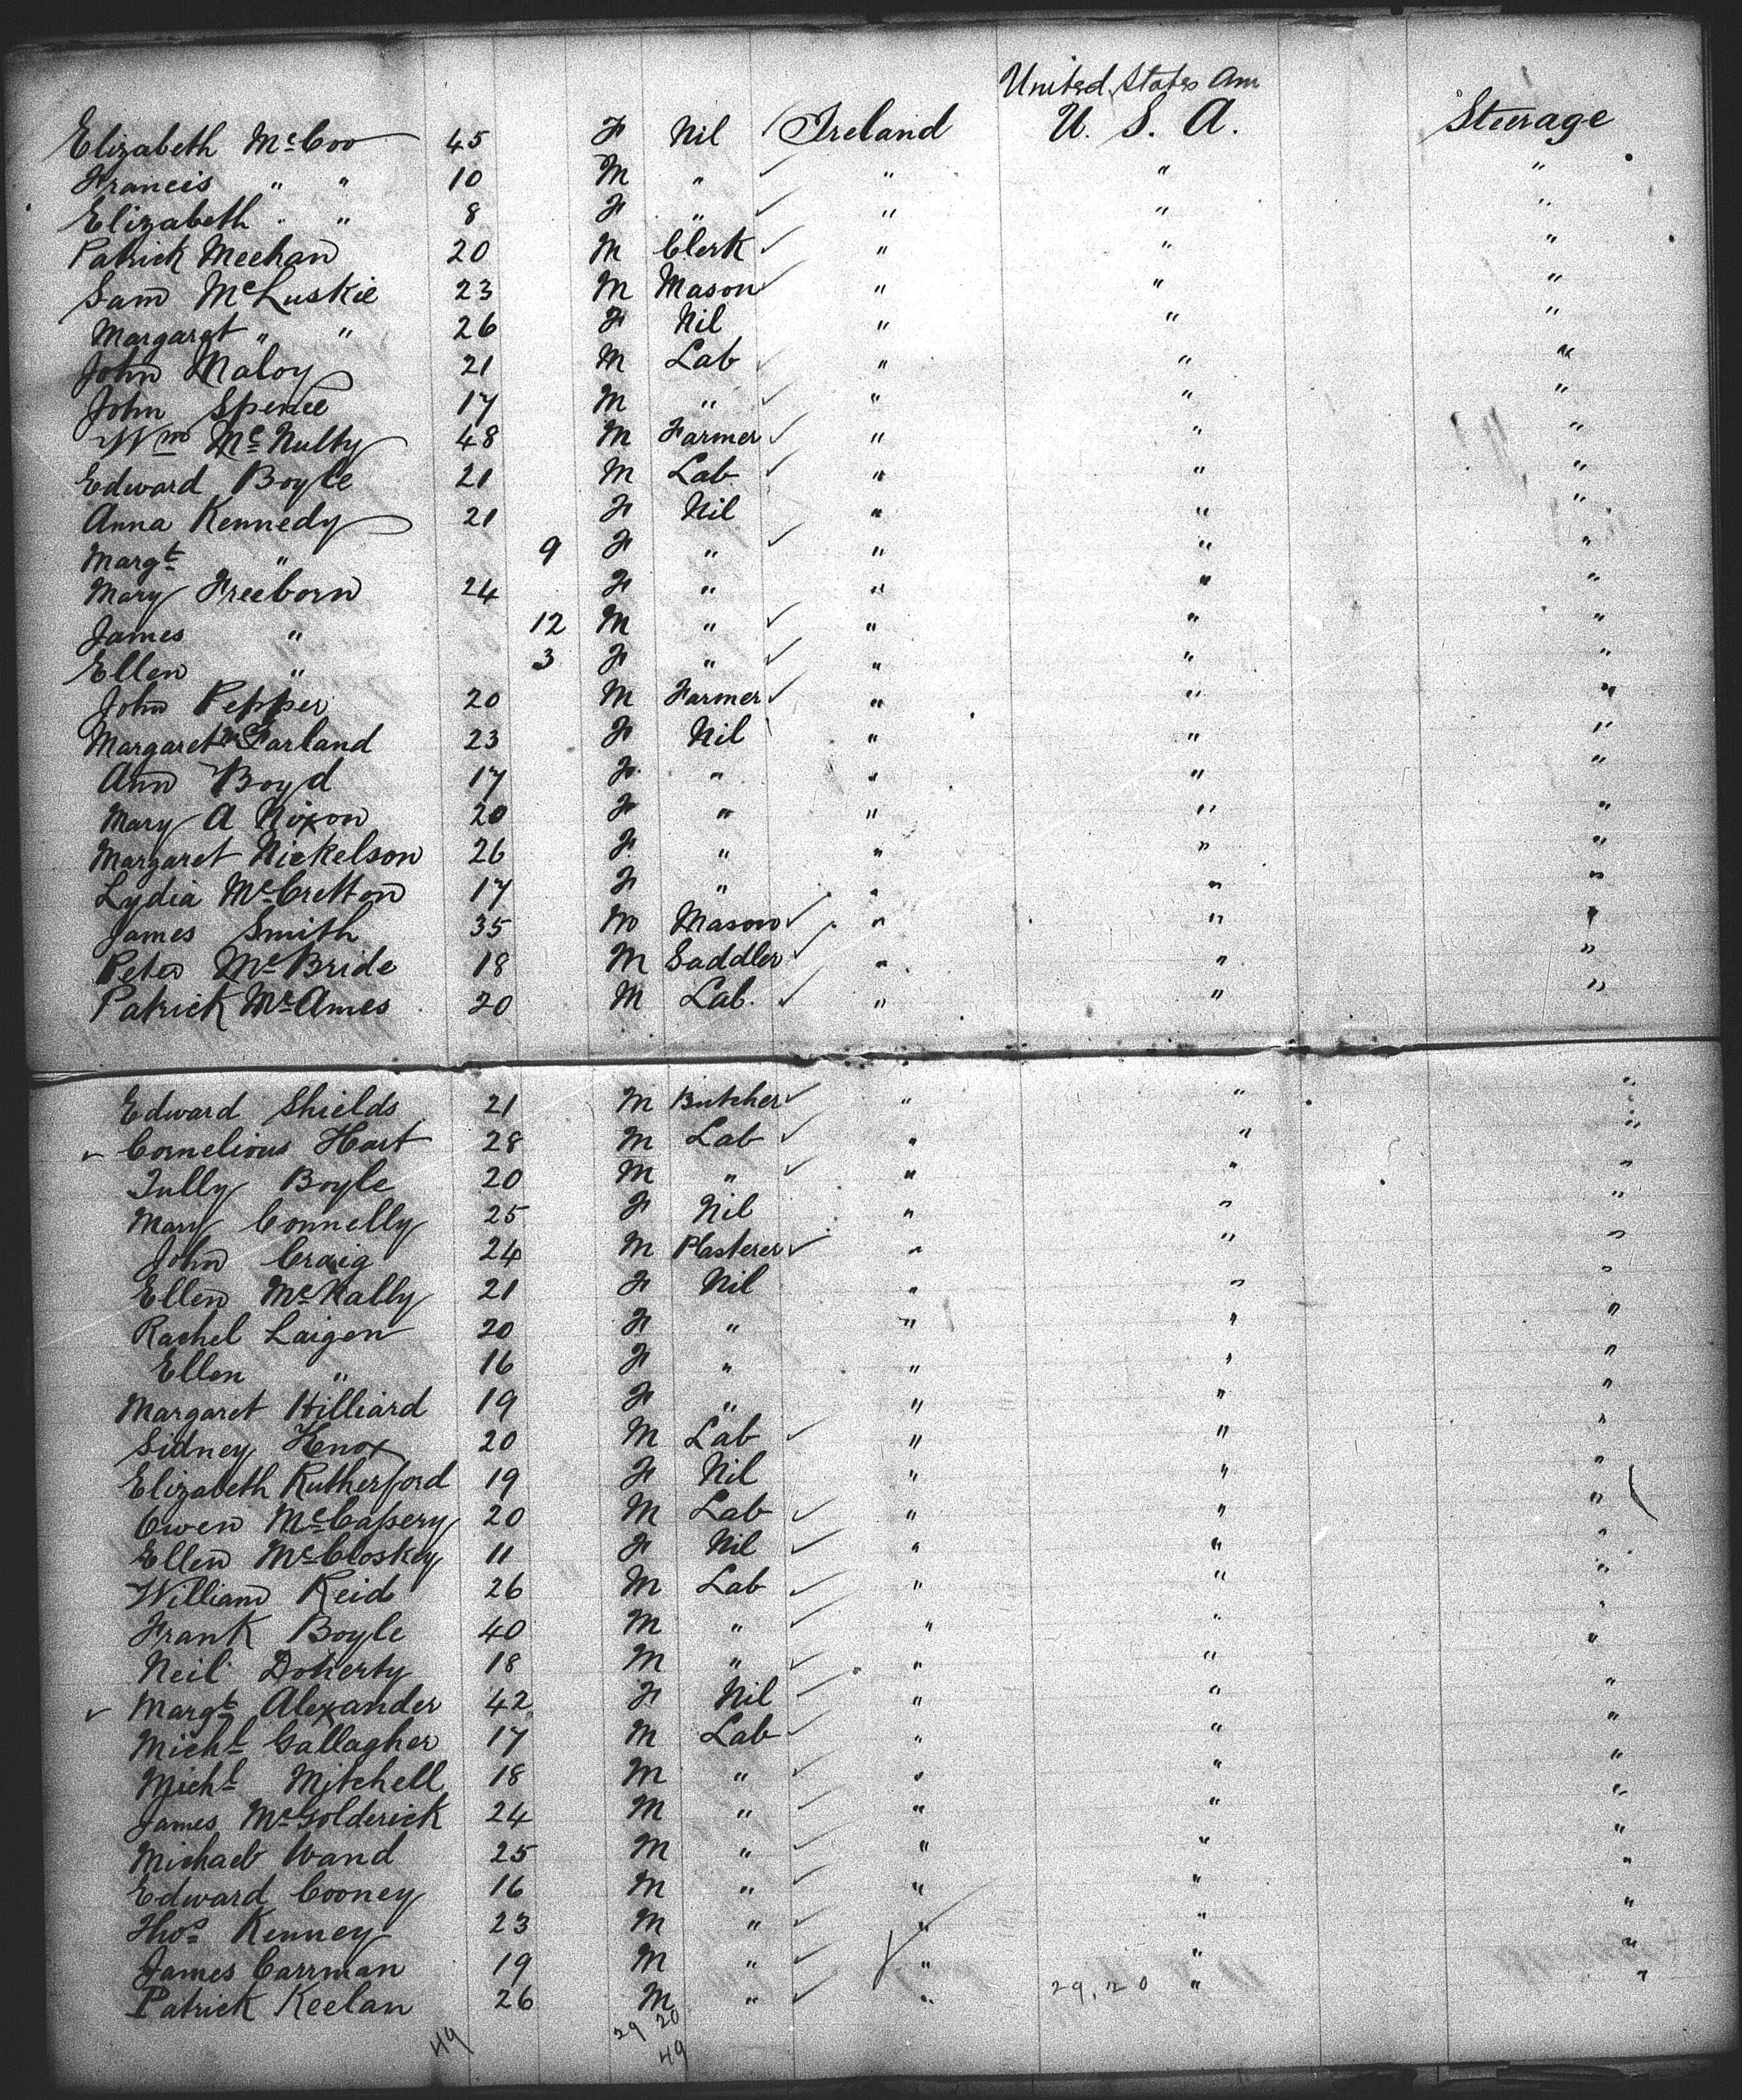 United States Am
Elizabeth McCoo 45 F Nil Ireland U. S. A. Steerage
Francis " " 10 M " " " "
Elizabeth " " 8 F " " " "
Patrick Meehan 20 M Clerk " " "
Sam McLuskie 23 M Mason " " "
Margaret " " 26 F Nil " " "
John Maloy 21 M Lab " " "
John Spence 17 M " " " "
Wm McNulty 48 M Farmer " " "
Edward Boyle 21 M Lab " " "
Anna Kennedy 21 F Nil " " "
Margt " 9 F " " " "
Mary Freeborn 24 F " " " "
James " 12 M " " " "
Ellen " 3 F " " " "
John Pepper 20 M Farmer " " "
Margaret McFarland 23 F Nil " " "
Ann Boyd 17 F " " " "
Mary A Nixon 20 F " " " "
Margaret Nickelson 26 F " " " "
Lydia McCretton 17 F " " " "
James Smith 35 M Mason " " "
Peter McBride 18 M Saddler " " "
Patrick McAmes 20 M Lab. " " "
Edward Shields 21 M Butcher " " "
Cornelious Hart 28 M Lab " " "
Tully Boyle 20 M " " " "
Mary Connelly 25 F Nil " " "
John Craig 24 M Plasterer " " "
Ellen McNally 21 F Nil " " "
Rachel Laigen 20 F " " " "
Ellen " 16 F " " " "
Margaret Hilliard 19 F " " " "
Sidney Knox 20 M Lab " " "
Elizabeth Rutherford 19 F Nil " " "
Owen McCassery 20 M Lab " " "
Ellen McCloskey 11 F Nil " " "
William Reid 26 M Lab " " "
Frank Boyle 40 M " " " "
Neil Doherty 18 M " " " "
Margt Alexander 42 F Nil " " "
Michl Gallagher 17 M Lab " " "
Michl Mitchell 18 M " " " "
James McGolderick 24 M " " " "
Michael Wand 25 M " " " "
Edward Cooney 16 M " " " "
Thos Kenney 23 M " " " "
James Carrman 19 M " " " "
Patrick Keelan 26 M " " 29, 20 " "
49 29 20
49